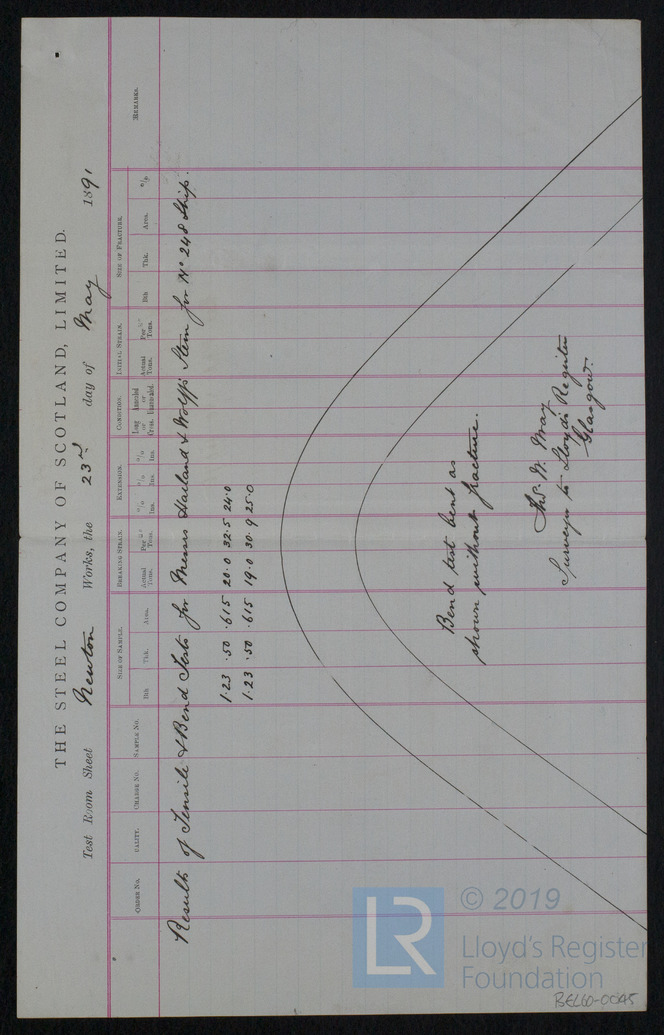 THE STEEL COMPANY OF SCOTLAND, LIMITED.
Test Room Sheet Newton Works, the 23rd day of May 1891
ORDER No. UALITY. CHARGE No. SAMPLE No. SIZE OF SAMPLE. BREAKING STRAIN. EXTENSION. CONDITION. INITIAL STRAIN. SIZE OF FRACTURE. REMARKS.
Bth Thk. Area. Actual Tons. Per □" Tons. % Ins. % Ins. % Ins. Long or Cross. Annealed or Unannealed. Actual Tons. Per □" Tons. Bth Thk. Area. %
Results of Tensile & Bend Tests for Messrs Harland & Wolff's Stem for No 248 Ship.
1.23 .50 .615 20.0 32.5 24.0
1.23 .50 .615 19.0 30.9 25.0
Bend test bent as
shown without fracture.
Thos. W. May
Surveyor to Lloyd's Register
Glasgow.
LR
© 2019
Lloyd's Register
Foundation
BEL60-0045